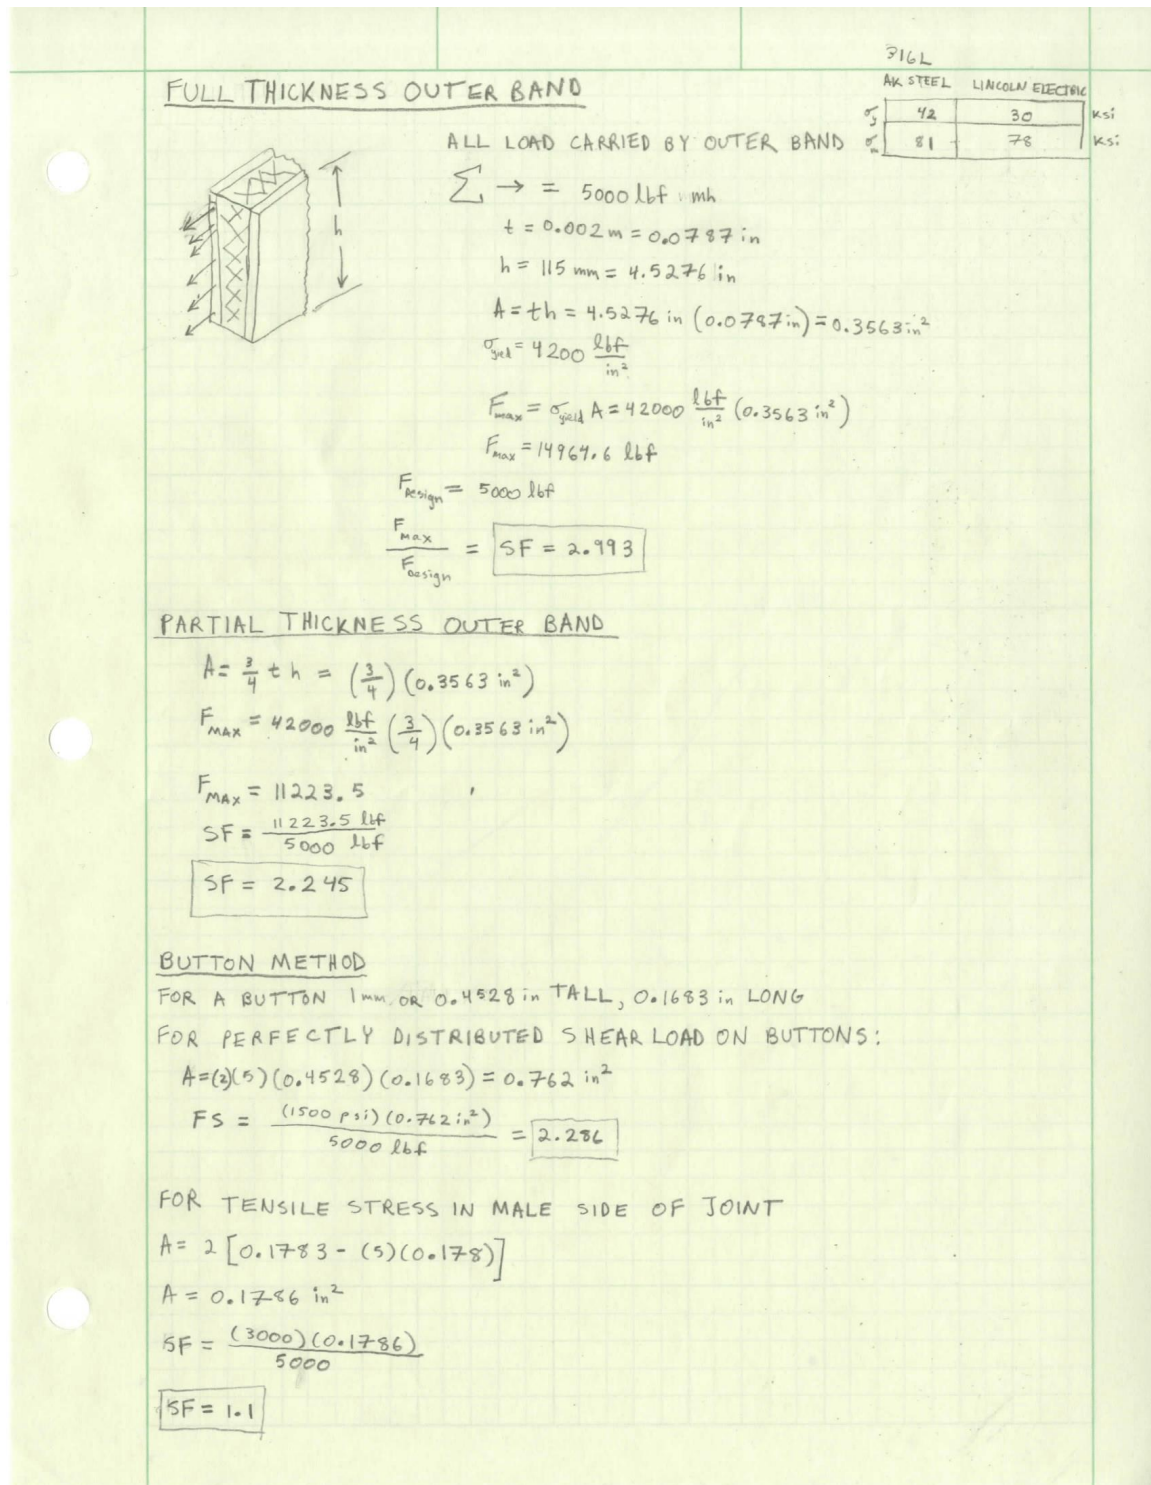 316L
AK STEEL LINCOLN ELECTRIC
σy 42 30 ksi
σm 81 78 ksi
FULL THICKNESS OUTER BAND
ALL LOAD CARRIED BY OUTER BAND
h
Σ → = 5000 lbf mh
t = 0.002 m = 0.0787 in
h = 115 mm = 4.5276 in
A = th = 4.5276 in (0.0787 in) = 0.3563 in²
σyield = 4200 lbf/in²
Fmax = σyield A = 42000 lbf/in² (0.3563 in²)
Fmax = 14964.6 lbf
FDesign = 5000 lbf
Fmax/FDesign = SF = 2.993
PARTIAL THICKNESS OUTER BAND
A = 3/4 t h = (3/4)(0.3563 in²)
FMAX = 42000 lbf/in² (3/4)(0.3563 in²)
FMAX = 11223.5
SF = 11223.5 lbf/5000 lbf
SF = 2.245
BUTTON METHOD
FOR A BUTTON 1mm OR 0.4528 in TALL, 0.1683 in LONG
FOR PERFECTLY DISTRIBUTED SHEAR LOAD ON BUTTONS:
A=(2)(5)(0.4528)(0.1683) = 0.762 in²
FS = (1500 psi)(0.762 in²)/5000 lbf = 2.286
FOR TENSILE STRESS IN MALE SIDE OF JOINT
A = 2[0.1783 - (5)(0.178)]
A = 0.1786 in²
SF = (3000)(0.1786)/5000
SF = 1.1